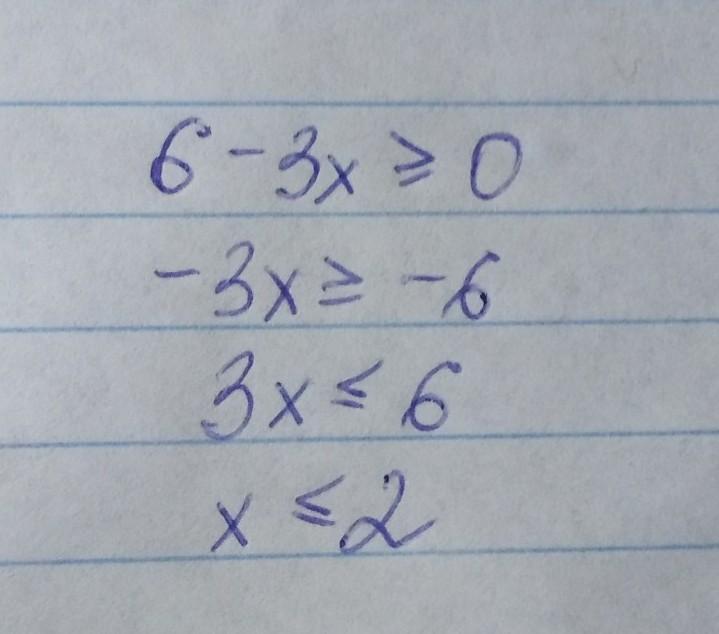 6 - 3x ≥ 0
-3x ≥ -6
3x ≤ 6
x ≤ 2